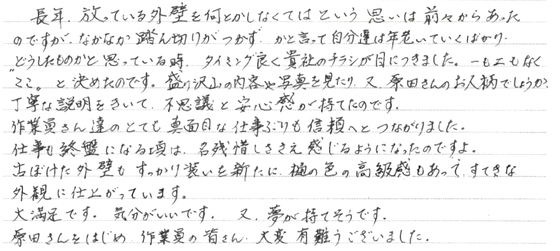 長年、放っている外壁を何とかしなくてはという思いは前々からあった
のですが、なかなか踏ん切りがつかず、かと言って自分達は年老いていくばかり、
どうしたものかと思っている時、タイミング良く貴社のチラシが目につきました。一も二もなく
"ここ"と決めたのです。盛り沢山の内容や写真を見たり、又、原田さんのお人柄でしょうか、
丁寧な説明をきいて、不思議と安心感が持てたのです。
作業員さん達のとても真面目な仕事ぶりも信頼へとつながりました。
仕事も終盤になる頃は、名残惜しささえ感じるようになったのですよ。
古ぼけた外壁もすっかり装いを新たに、植の色の高級感もあって、すてきな
外観に仕上がっています。
大満足です。気分がいいです。又、夢が持てそうです。
原田さんをはじめ、作業員の皆さん、大変有難うございました。